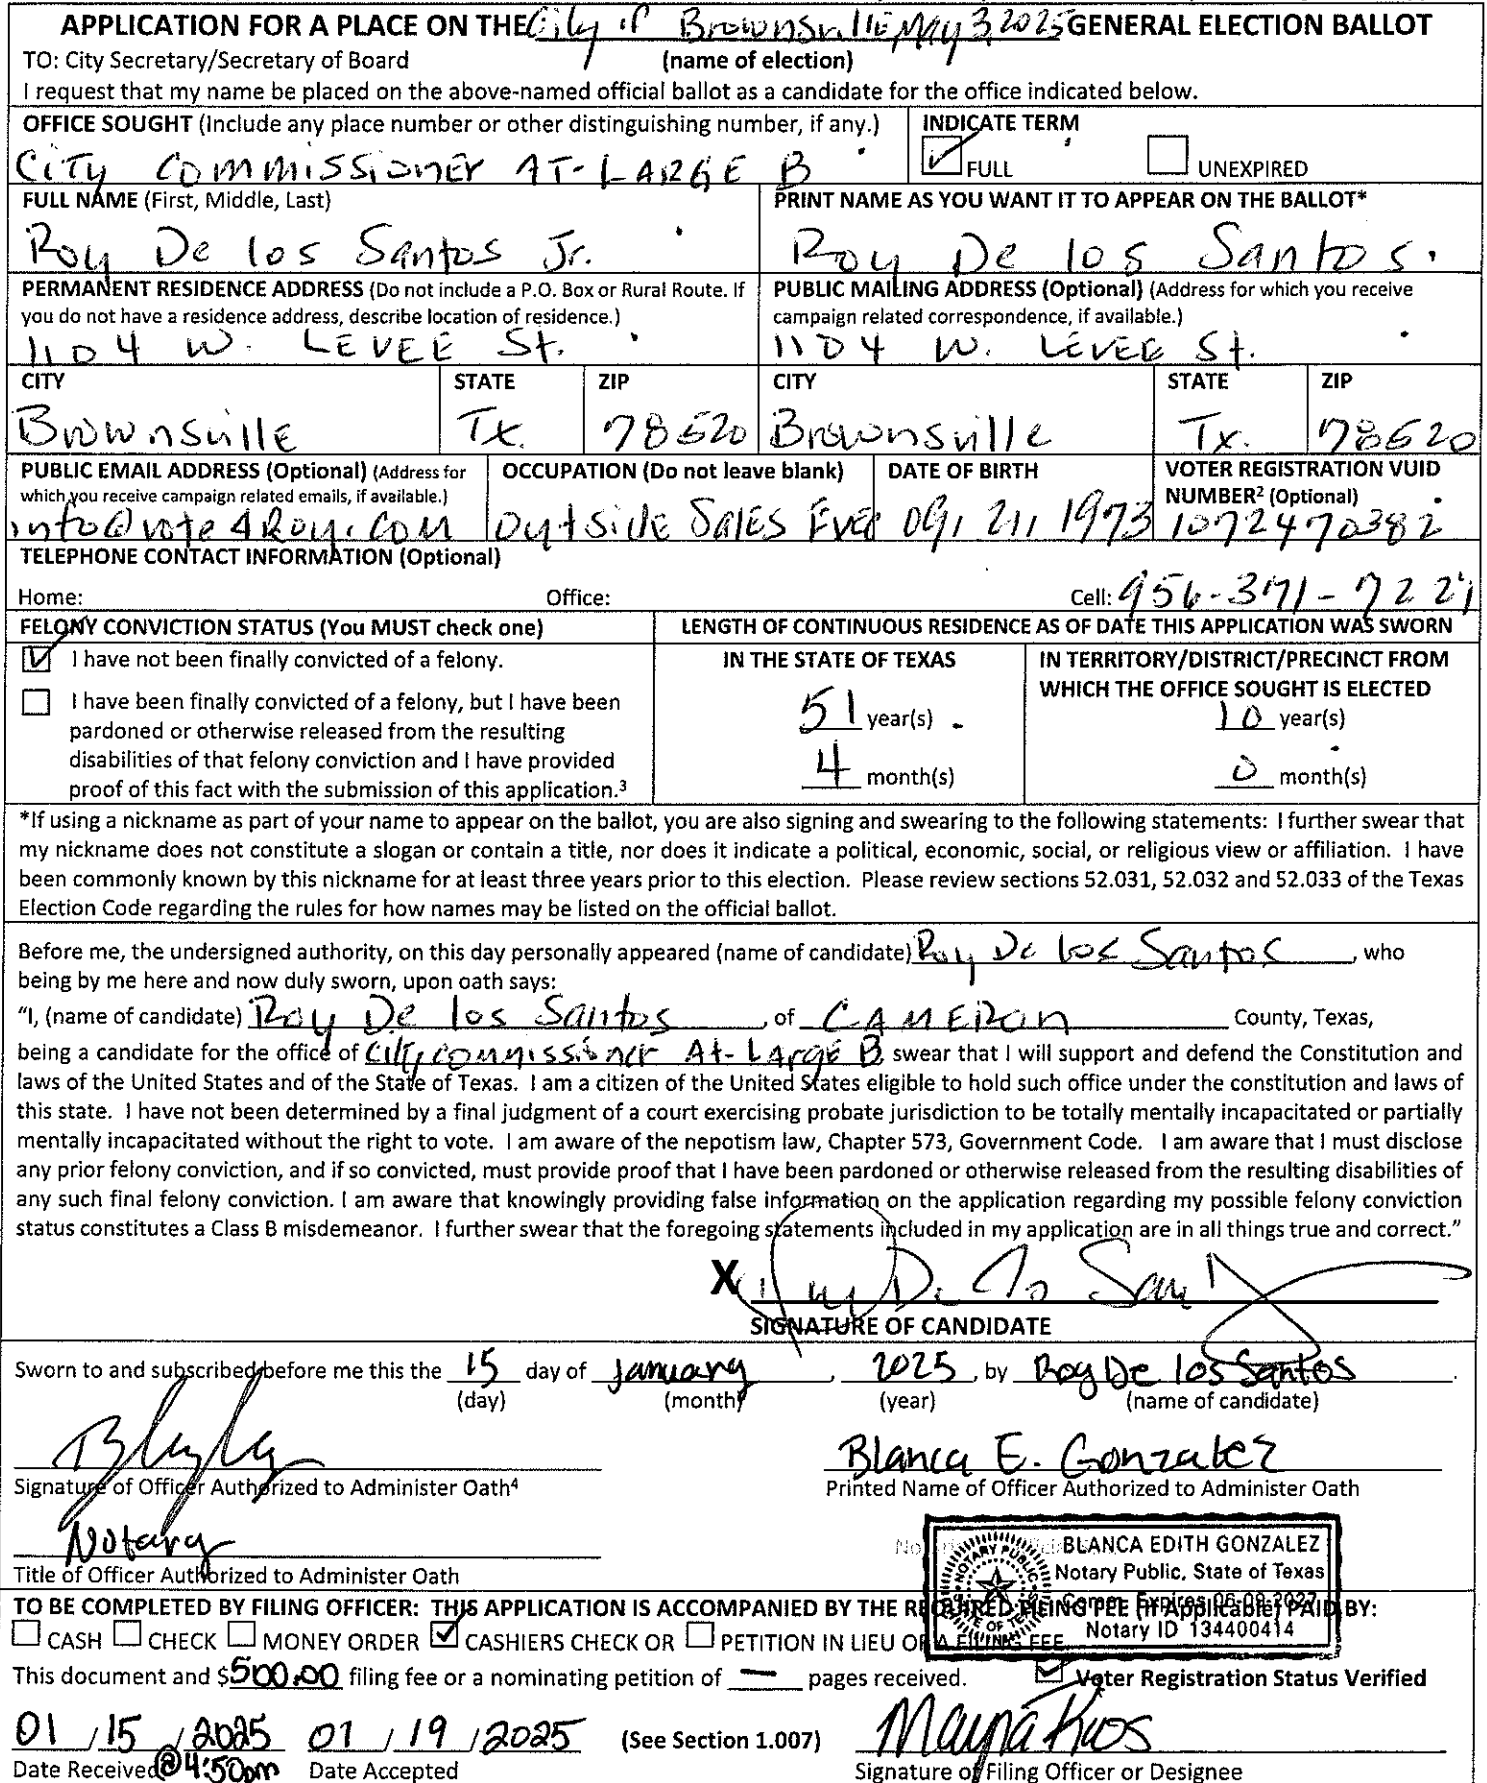 APPLICATION FOR A PLACE ON THE City of Brownsville, May 3, 2025 GENERAL ELECTION BALLOT
TO: City Secretary/Secretary of Board (name of election)
I request that my name be placed on the above-named official ballot as a candidate for the office indicated below.
OFFICE SOUGHT (Include any place number or other distinguishing number, if any.) INDICATE TERM
City Commissioner AT-LARGE B FULL UNEXPIRED
FULL NAME (First, Middle, Last) PRINT NAME AS YOU WANT IT TO APPEAR ON THE BALLOT*
Roy De los Santos Jr. Roy De los Santos
PERMANENT RESIDENCE ADDRESS (Do not include a P.O. Box or Rural Route. If PUBLIC MAILING ADDRESS (Optional) (Address for which you receive
you do not have a residence address, describe location of residence.) campaign related correspondence, if available.)
1104 W. LEVEE St. 1104 W. LEVEE St.
CITY STATE ZIP CITY STATE ZIP
Brownsville Tx. 78520 Brownsville Tx. 78520
PUBLIC EMAIL ADDRESS (Optional) (Address for OCCUPATION (Do not leave blank) DATE OF BIRTH VOTER REGISTRATION VUID
which you receive campaign related emails, if available.) NUMBER² (Optional)
info@vote4Roy.com Outside Sales Exec 09, 21, 1973 1072470382
TELEPHONE CONTACT INFORMATION (Optional)
Home: Office: Cell: 956-371-7221
FELONY CONVICTION STATUS (You MUST check one) LENGTH OF CONTINUOUS RESIDENCE AS OF DATE THIS APPLICATION WAS SWORN
I have not been finally convicted of a felony. IN THE STATE OF TEXAS IN TERRITORY/DISTRICT/PRECINCT FROM
WHICH THE OFFICE SOUGHT IS ELECTED
I have been finally convicted of a felony, but I have been 51 year(s) 10 year(s)
pardoned or otherwise released from the resulting
disabilities of that felony conviction and I have provided 4 month(s) 0 month(s)
proof of this fact with the submission of this application.³
*If using a nickname as part of your name to appear on the ballot, you are also signing and swearing to the following statements: I further swear that
my nickname does not constitute a slogan or contain a title, nor does it indicate a political, economic, social, or religious view or affiliation. I have
been commonly known by this nickname for at least three years prior to this election. Please review sections 52.031, 52.032 and 52.033 of the Texas
Election Code regarding the rules for how names may be listed on the official ballot.
Before me, the undersigned authority, on this day personally appeared (name of candidate) Roy De los Santos, who
being by me here and now duly sworn, upon oath says:
"I, (name of candidate) Roy De los Santos, of CAMERON County, Texas,
being a candidate for the office of City Commissioner At-Large B, swear that I will support and defend the Constitution and
laws of the United States and of the State of Texas. I am a citizen of the United States eligible to hold such office under the constitution and laws of
this state. I have not been determined by a final judgment of a court exercising probate jurisdiction to be totally mentally incapacitated or partially
mentally incapacitated without the right to vote. I am aware of the nepotism law, Chapter 573, Government Code. I am aware that I must disclose
any prior felony conviction, and if so convicted, must provide proof that I have been pardoned or otherwise released from the resulting disabilities of
any such final felony conviction. I am aware that knowingly providing false information on the application regarding my possible felony conviction
status constitutes a Class B misdemeanor. I further swear that the foregoing statements included in my application are in all things true and correct."
X Roy De lo Sant
SIGNATURE OF CANDIDATE
Sworn to and subscribed before me this the 15 day of January, 2025, by Roy De los Santos.
(day) (month) (year) (name of candidate)
Blanca E. Gonzalez
Signature of Officer Authorized to Administer Oath⁴ Printed Name of Officer Authorized to Administer Oath
Notary
Title of Officer Authorized to Administer Oath
BLANCA EDITH GONZALEZ
Notary Public, State of Texas
Comm. Expires 06-09-2027
Notary ID 134400414
NOTARY PUBLIC
STATE OF TEXAS
TO BE COMPLETED BY FILING OFFICER: THIS APPLICATION IS ACCOMPANIED BY THE REQUIRED FILING FEE (If Applicable) PAID BY:
CASH CHECK MONEY ORDER CASHIERS CHECK OR PETITION IN LIEU OF A FILING FEE.
This document and $500.00 filing fee or a nominating petition of — pages received. Voter Registration Status Verified
01/15/2025 01/19/2025 (See Section 1.007)
Date Received @4:50pm Date Accepted Signature of Filing Officer or Designee